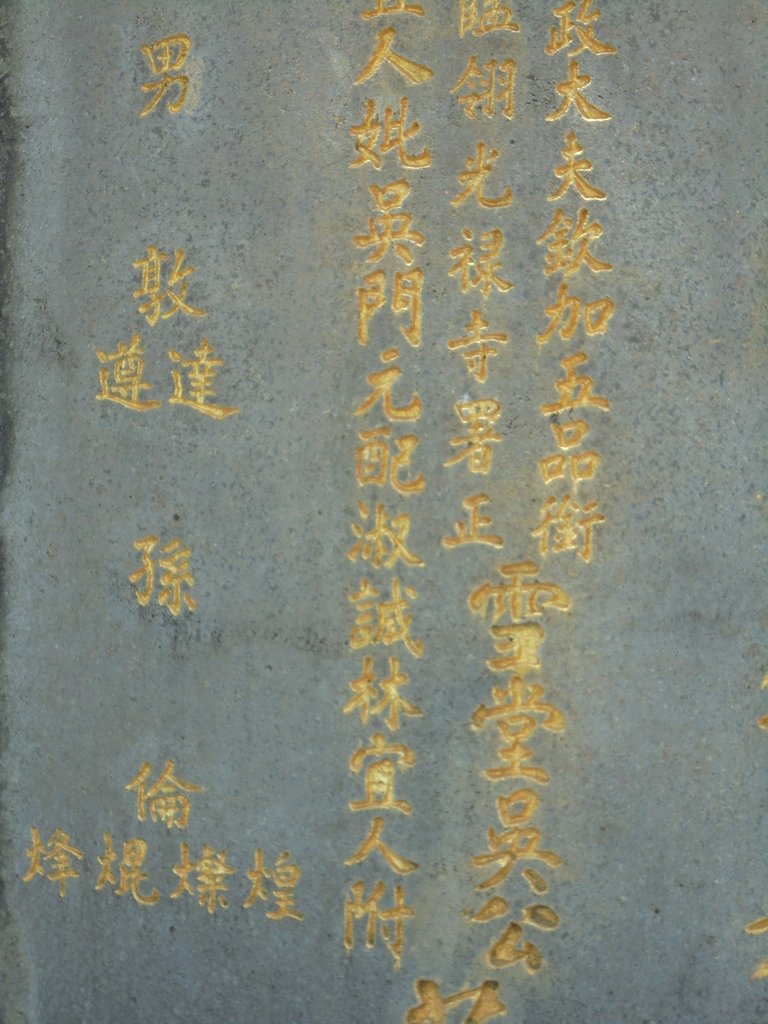 政大夫欽加五品銜
翎光禄寺署正
雪堂吳公
宜人妣吳門元配淑誠林宜人附
男
敦
達
遵
孫
倫
煌
燦
焜
烽